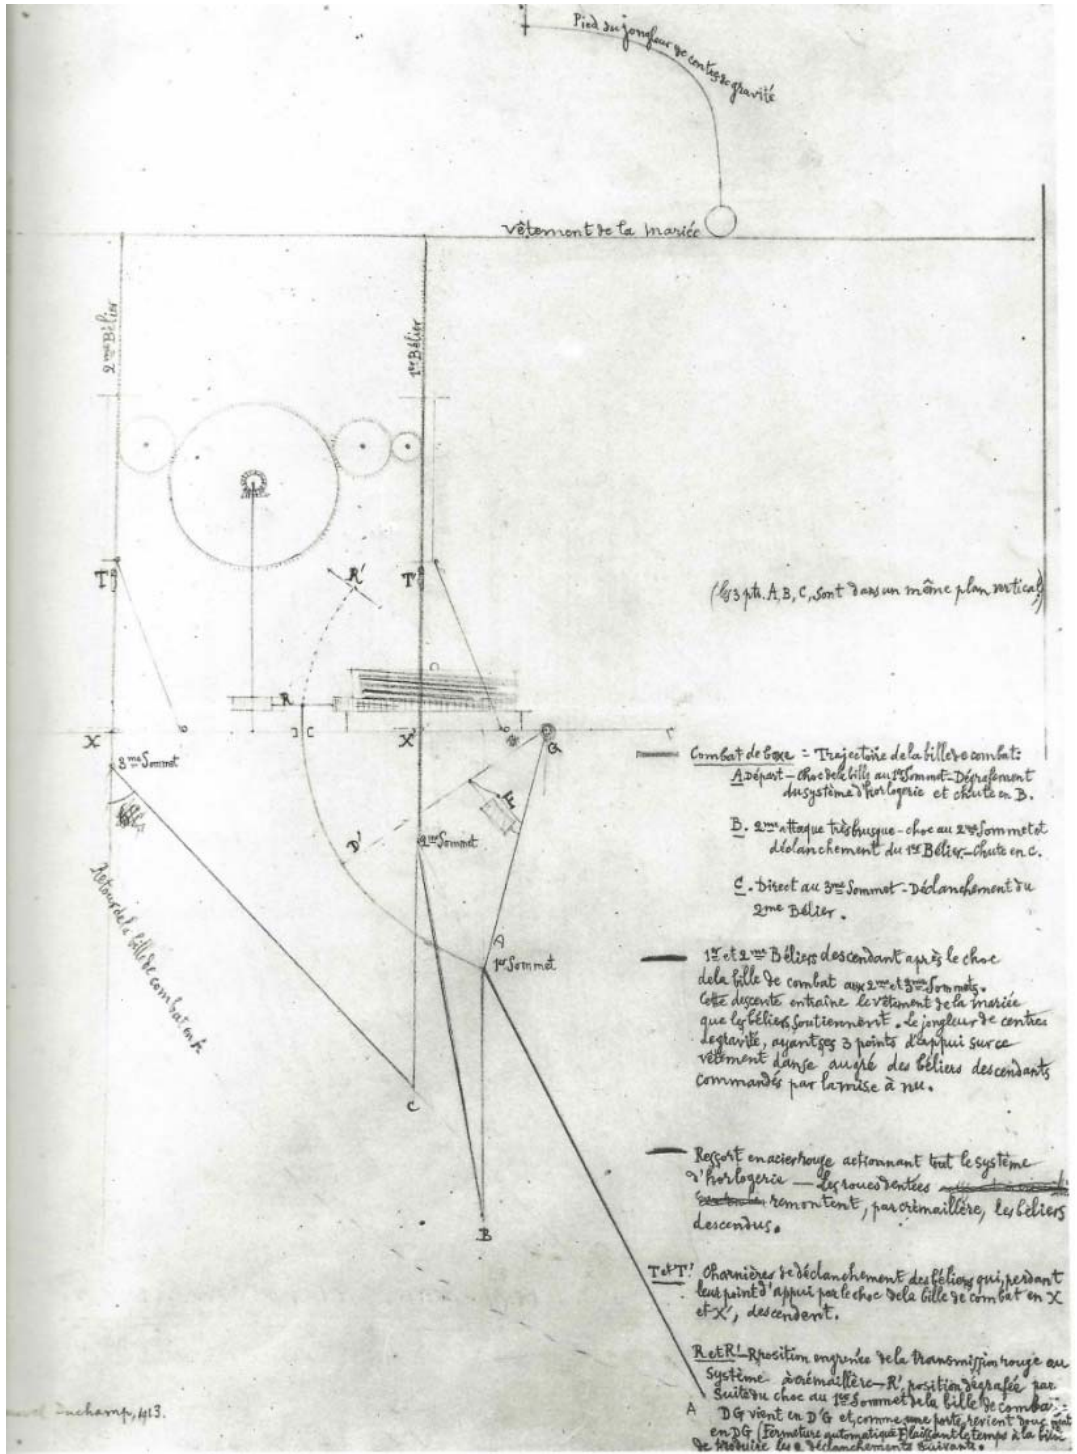 Pied du jongleur de centres de gravité
vêtement de la mariée
2me Bélier
1er Bélier
T
R'
T'
(les 3 pts. A, B, C, sont dans un même plan vertical)
R
X
X'
G
3me Sommet
F
D'
2me Sommet
A
1er Sommet
Retour de la bille de combat en A
C
B
Combat de boxe = Trajectoire de la bille de combat:
A. Départ – choc de la bille au 1er Sommet – Dégrafement
du système d'horlogerie et chute en B.
B. 2me attaque très brusque – choc au 2me Sommet et
déclanchement du 1er Bélier – Chute en C.
C. Direct au 3me Sommet – Déclanchement du
2me Bélier.
1er et 2me Béliers descendant après le choc
de la bille de combat aux 2me et 3me Sommets.
Cette descente entraîne le vêtement de la mariée
que les béliers soutiennent. Le jongleur de centres
de gravité, ayant ses 3 points d'appui sur ce
vêtement danse au gré des béliers descendants
commandés par la mise à nu.
Ressort en acier rouge actionnant tout le système
d'horlogerie — Les roues dentées
remontent, par crémaillère, les béliers
descendus.
T et T' Charnières de déclanchement des béliers qui, perdant
leur point d'appui par le choc de la bille de combat en X
et X', descendent.
R et R' – R position engrenée de la transmission rouge au
système à crémaillère – R' position dégrafée par
suite du choc au 1er Sommet de la bille de combat
A
DG vient en D'G et, comme une porte, revient
en DG (Fermeture automatique F) laissant le temps à la bille
de produire les 2 déclanchements suivants.
Duchamp, 1913.